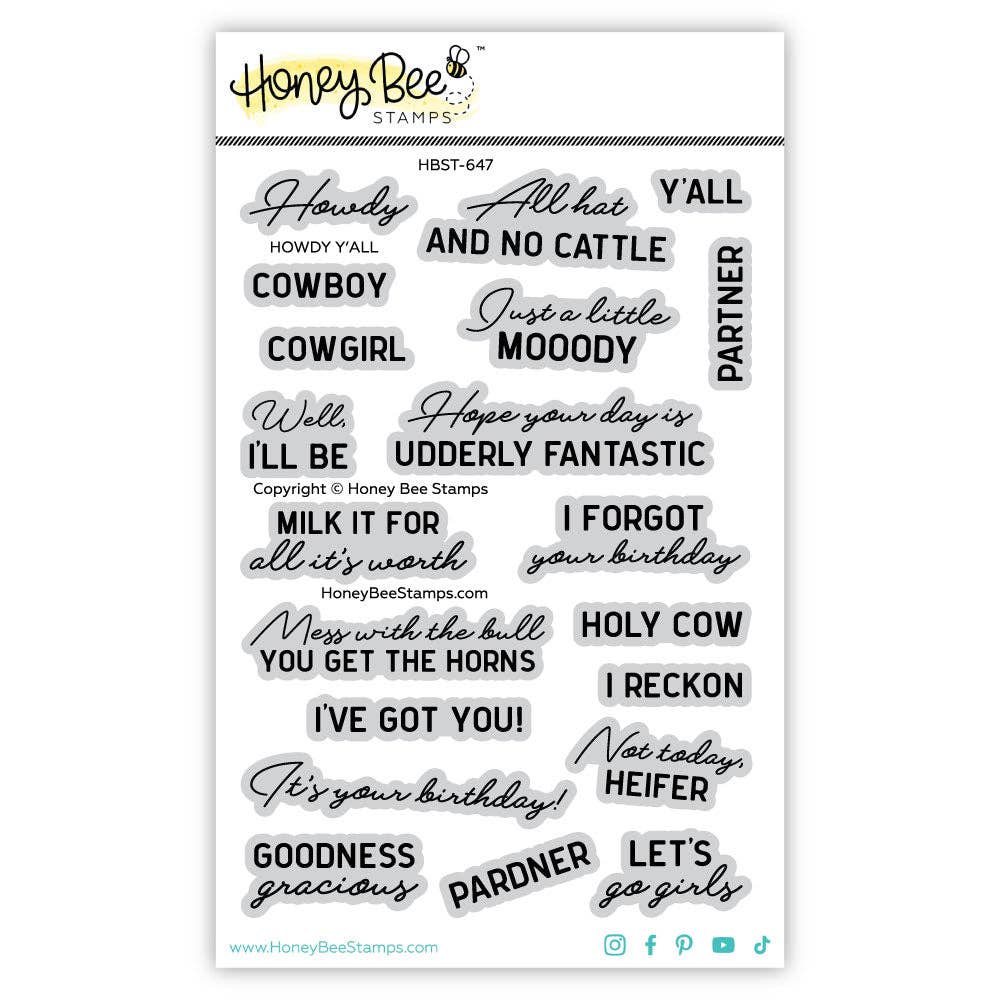 Honey Bee ™
STAMPS
HBST-647
Howdy
HOWDY Y'ALL
COWBOY
COWGIRL
All hat
AND NO CATTLE
Y'ALL
PARTNER
Just a little
MOOODY
Well,
I'LL BE
Hope your day is
UDDERLY FANTASTIC
Copyright © Honey Bee Stamps
MILK IT FOR
all it's worth
I FORGOT
your birthday
HoneyBeeStamps.com
Mess with the bull
YOU GET THE HORNS
HOLY COW
I RECKON
I'VE GOT YOU!
Not today,
HEIFER
It's your birthday!
GOODNESS
gracious
PARDNER
LET'S
go girls
www.HoneyBeeStamps.com